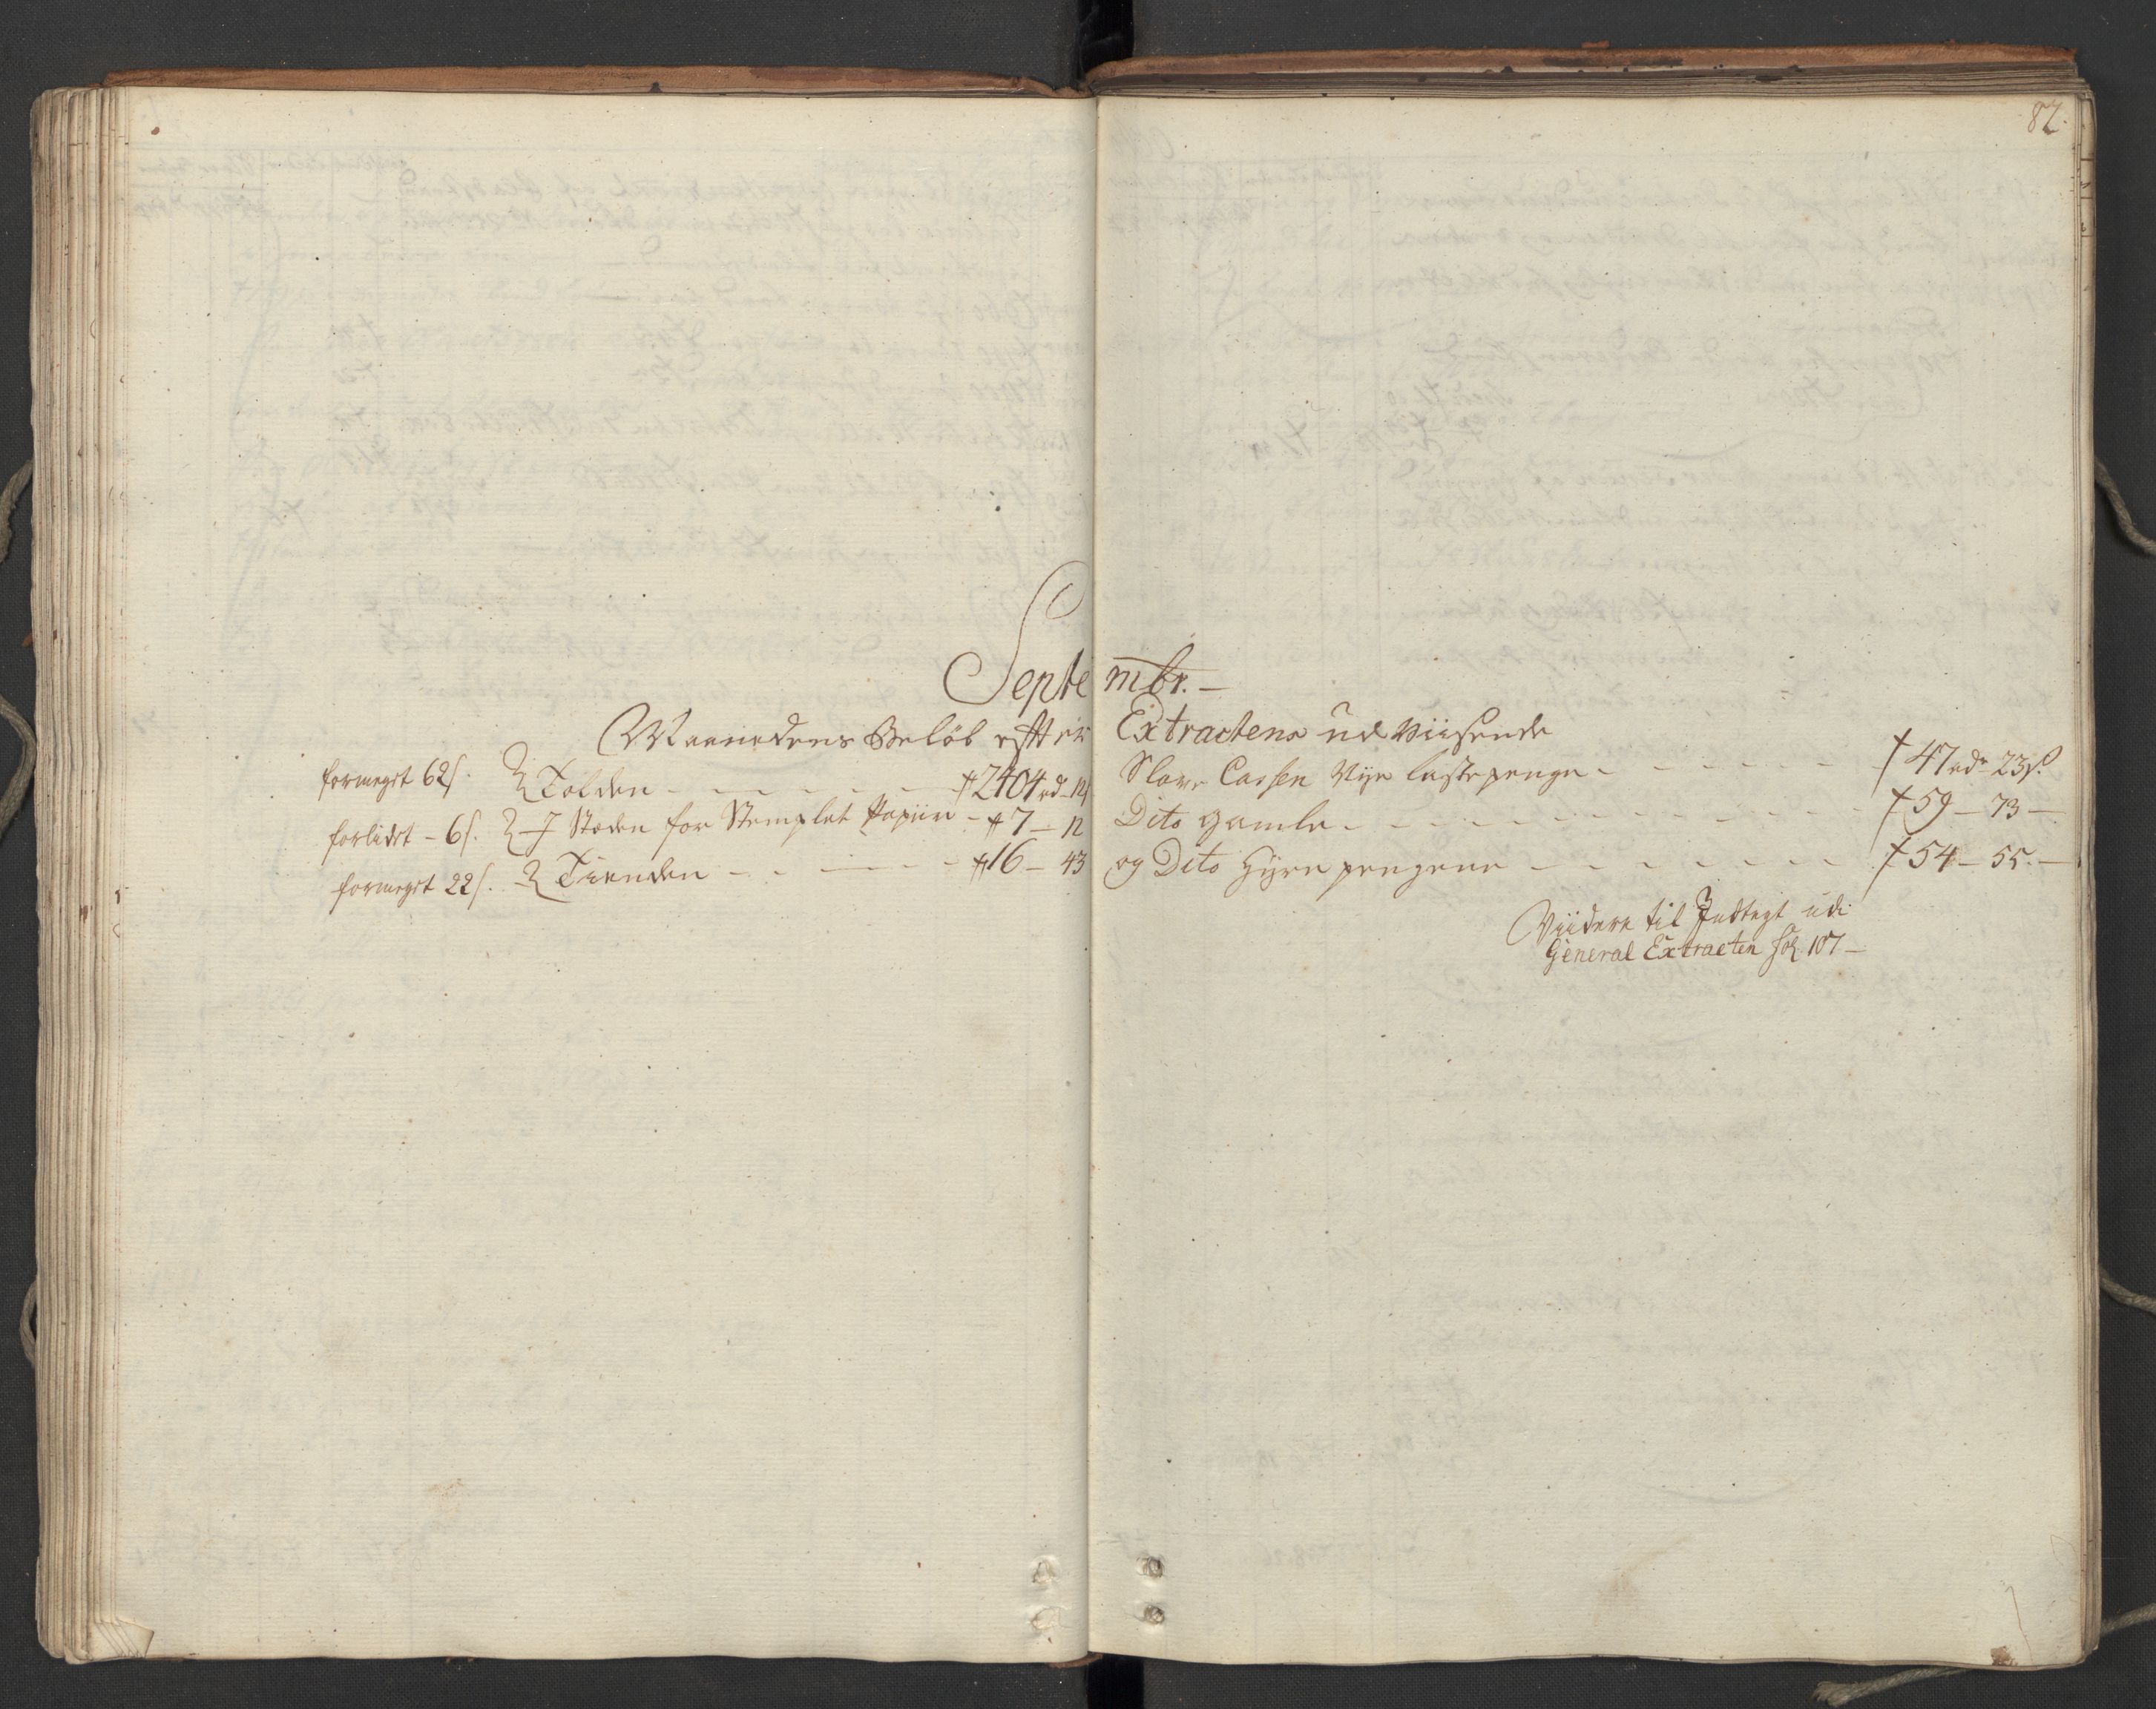 82.
Septembr. –
Maanedens Beløb efter Extractens udviisende
formeget 62s. Tolden – – – – 2404 rd – 12s
forlidt – 6s. I Steden for Stemplet Papiir – 7 – 12
formeget 22s. Tienden – – – – 16 – 43
Slave Cassen Nye lastepenge – – – – – – 47 rdr 23s.
Dito gamle – – – – – – – – – 59 – 73 –
og Dito Hyre pengene – – – – – – – 54 – 55. –
Viidere til Indtegt udi
General Extracten fol 107 –